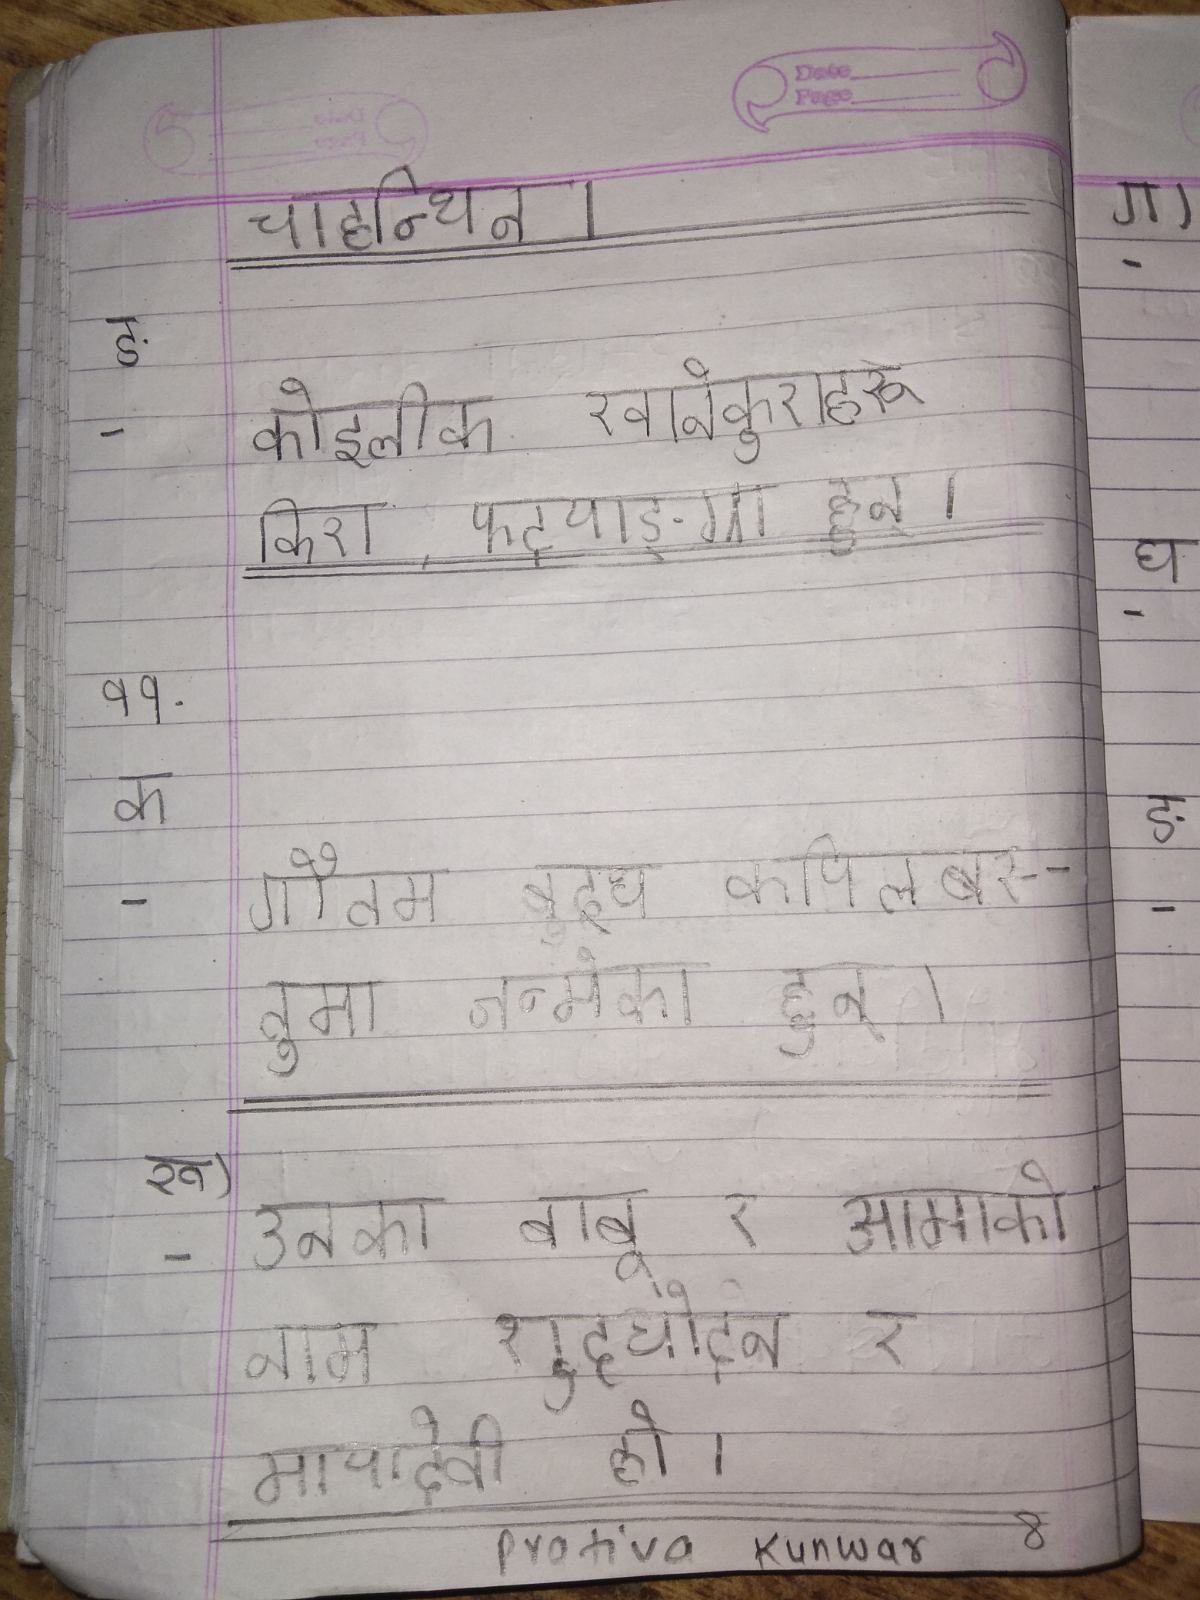 Date
Page
चाहन्थिन ।
ङ
- कोइलीक खानेकुराहरू
किरा, फट्याङ्ग्रा हुन् ।
११.
क
- गौतम बुद्ध कपिलबस-
तुमा जन्मेका हुन् ।
ख)
- उनका बाबू र आमाको
नाम शुद्धोदन र
मायादेवी हो ।
Prativa Kunwar 8
ग)
-
घ
-
ङ
-